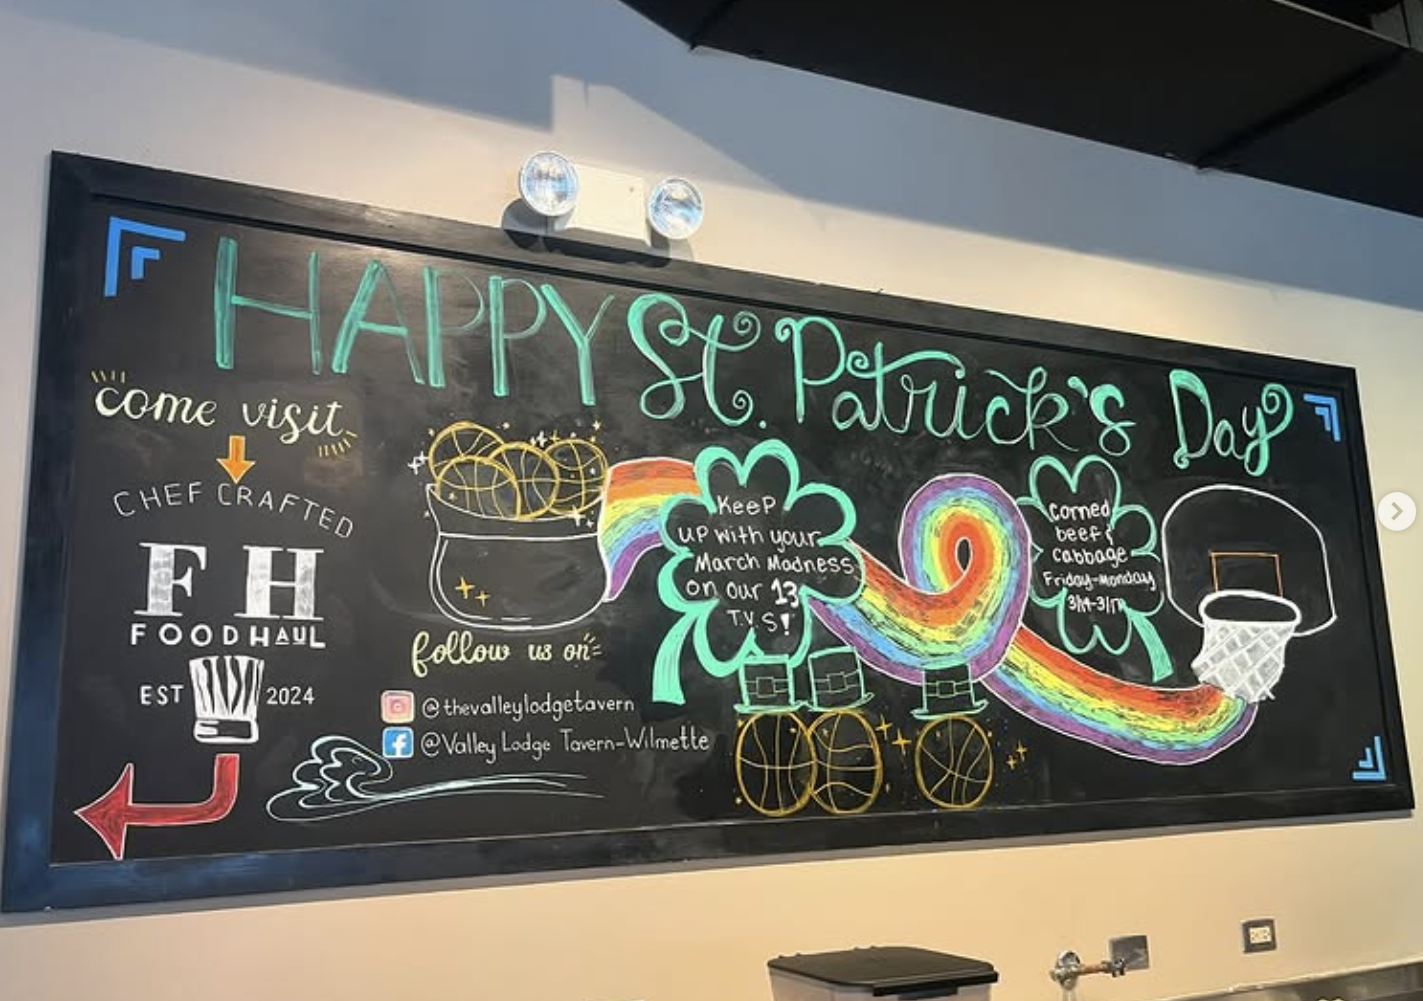 HAPPY St. Patrick's Day
come visit
CHEF CRAFTED
FH
FOODHAUL
EST 2024
follow us on
@thevalleylodgetavern
@Valley Lodge Tavern-Wilmette
Keep
up with your
March Madness
on our 13
T.V.S!
Corned
beef &
cabbage
Friday-Monday
3/14-3/17